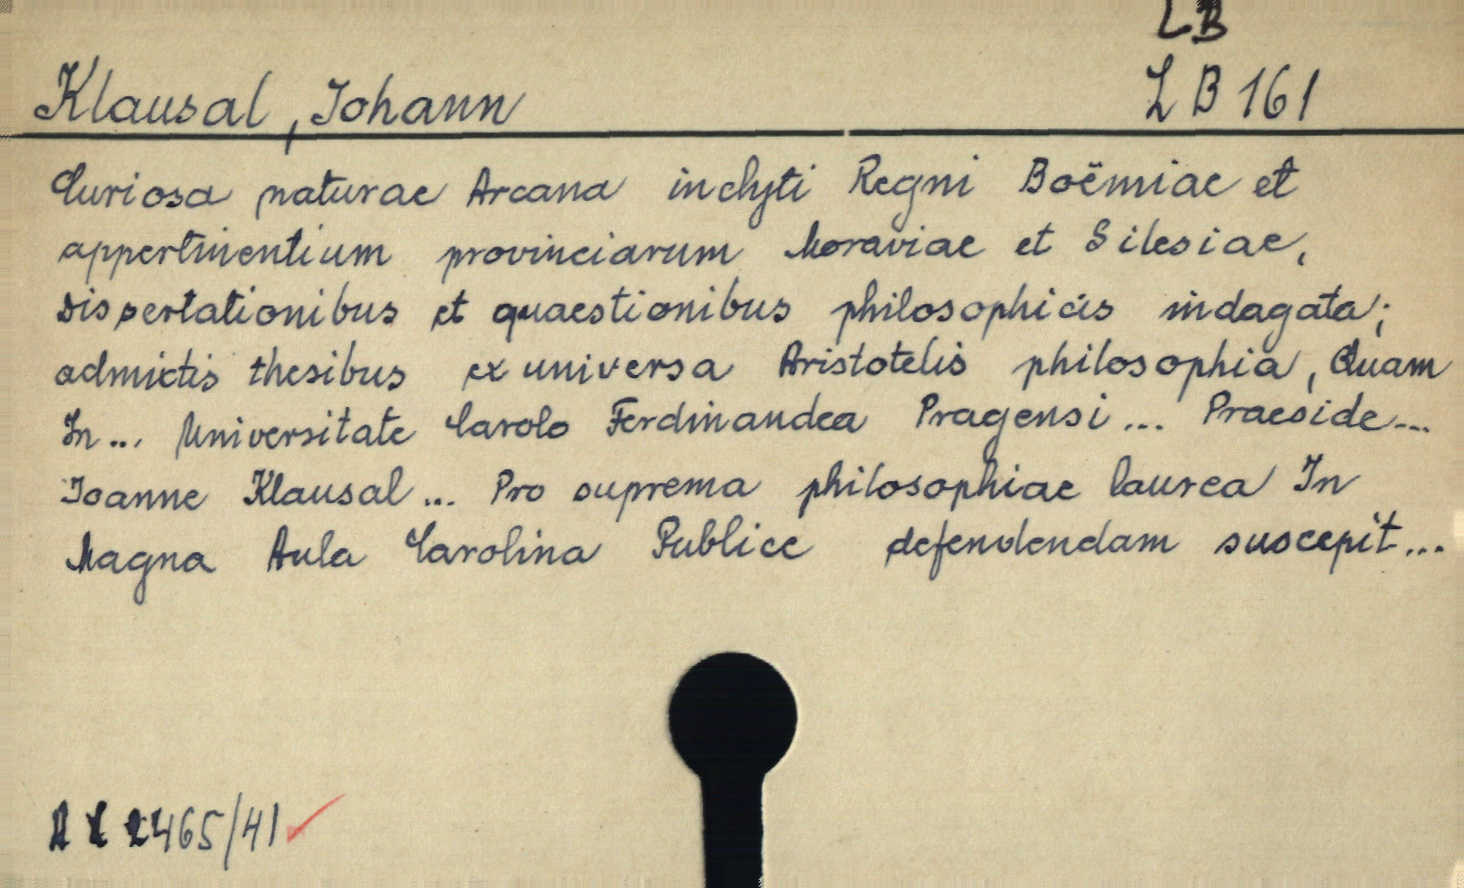 LB
Klausal, Johann LB 161
Curiosa naturae Arcana inclyti Regni Boëmiae et
appertinentium provinciarum Moraviae et Silesiae,
Dissertationibus et quaestionibus philosophicis indagata;
admictis thesibus ex universa Aristotelis philosophia, Quam
In... Universitate Carolo Ferdinandea Pragensi... Praeside...
Joanne Klausal... Pro suprema philosophiae laurea In
Magna Aula Carolina Publice defendendam suscepit...
2465/41